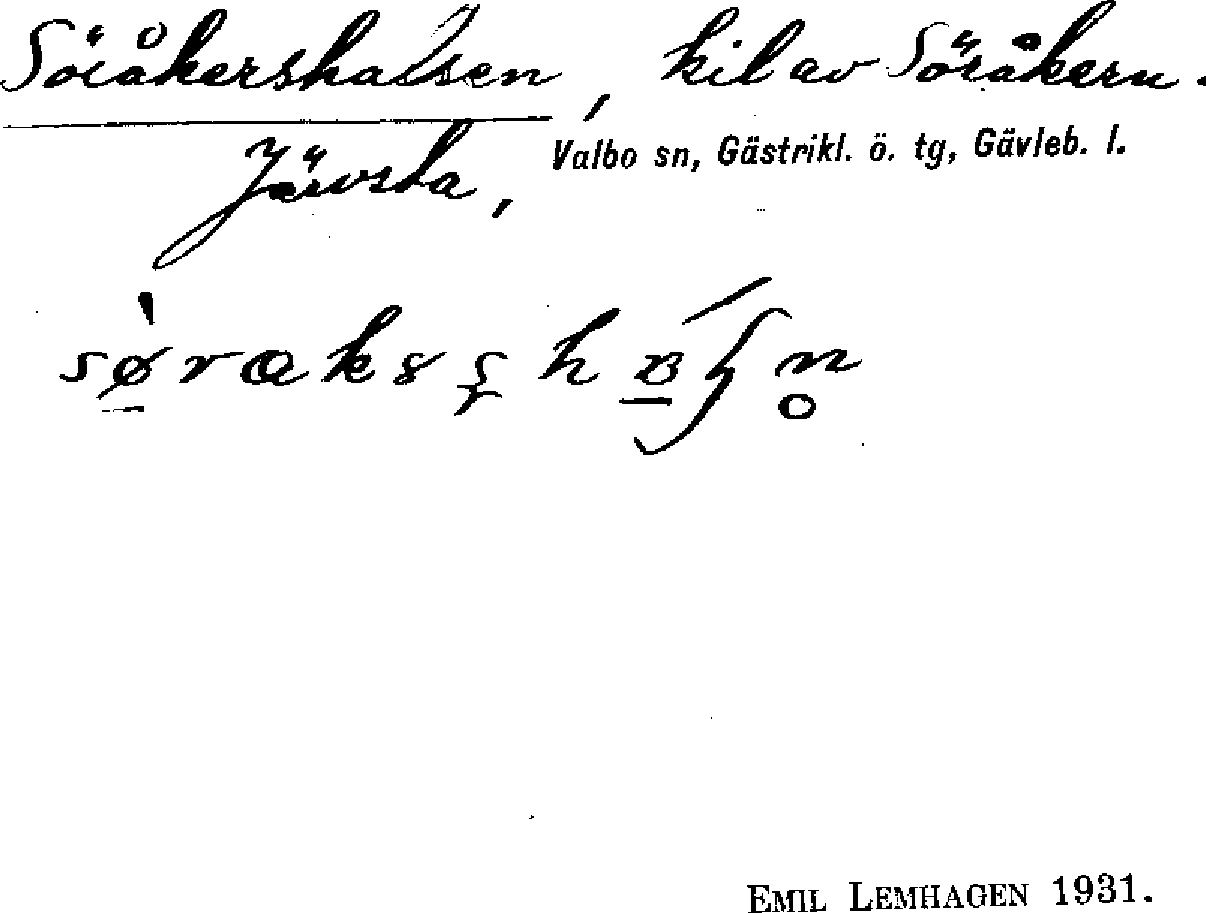 Söråkershalsen, kil av Söråkern.
Järvsta, Valbo sn, Gästrikl. ö. tg, Gävleb. l.
EMIL LEMHAGEN 1931.